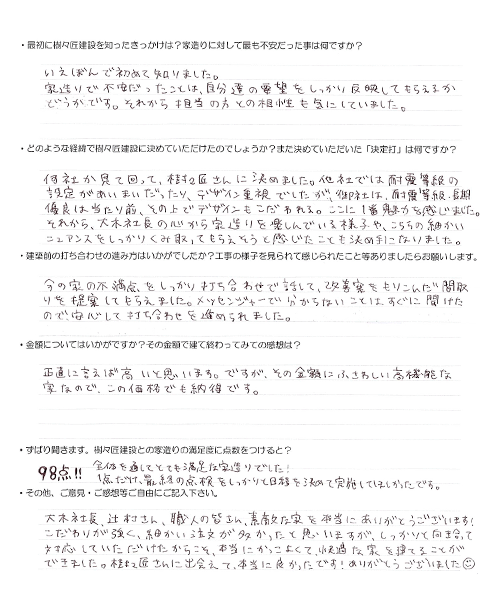 ・最初に樹々匠建設を知ったきっかけは？家造りに対して最も不安だった事は何ですか？
いえばんで初めて知りました。
家造りで不安だったことは、自分達の要望をしっかり反映してもらえるか
どうかです。それから担当の方との相性も気にしていました。
・どのような経緯で樹々匠建設に決めていただけたのでしょうか？また決めていただいた「決定打」は何ですか？
何社か見て回って、樹々匠さんに決めました。他社では耐震等級の
設定があいまいだったり、デザイン重視でしたが、御社は、耐震等級・長期
優良は当たり前、その上でデザインもこだわれる。ここに1番魅力を感じました。
それから、大木社長の心から家造りを楽しんでいる様子や、こちらの細かい
ニュアンスをしっかりくみ取ってもらえそうと感じたことも決め手になりました。
・建築前の打ち合わせの進み方はいかがでしたか？工事の様子を見られて感じられたこと等ありましたらお願いします。
今の家の不満点をしっかり打ち合わせで話して、改善案をもりこんだ間取
りを提案してもらえました。メッセンジャーで分からないことはすぐに聞けた
ので安心して打ち合わせを進められました。
・金額についてはいかがですか？その金額で建て終わってみての感想は？
正直に言えば高いと思います。ですが、その金額にふさわしい高機能な
家なので、この価格でも納得です。
・ずばり聞きます。樹々匠建設との家造りの満足度に点数をつけると？
98点!! 全体を通してとても満足な家造りでした！
1点だけ、最終の点検をしっかりと日程を決めて実施してほしかったです。
・その他、ご意見・ご感想等ご自由にご記入下さい。
大木社長、辻村さん、職人の皆さん、素敵な家を本当にありがとうございます！
こだわりが強く、細かい注文が多かったと思いますが、しっかりと向き合って
対応していただけたからこそ、本当にかっこよくて、快適な家を建てることが
できました。樹々匠さんに出会えて、本当に良かったです！ありがとうございました